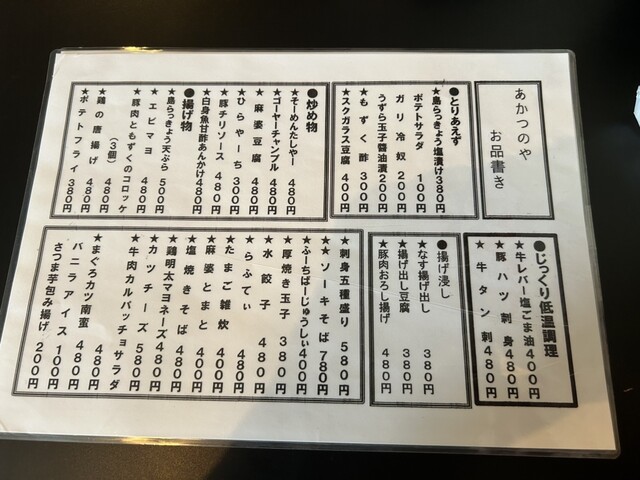 あかつのや
お品書き
●とりあえず
★島らっきょう塩漬け380円
ポテトサラダ 100円
ガリ冷奴 200円
うずら玉子醤油漬200円
★もずく酢 300円
★スクガラス豆腐 400円
●炒め物
★そーめんたしやー 480円
★ゴーヤーチャンプル 480円
★麻婆豆腐 480円
★ひらやーち 300円
★豚チリソース 480円
★白身魚甘酢あんかけ480円
●揚げ物
★島らっきょう天ぷら 500円
★エビマヨ 480円
★豚肉ともずくのコロッケ
(3個) 480円
★鶏の唐揚げ 480円
★ポテトフライ 380円
●じっくり低温調理
★牛レバー塩ごま油 400円
★豚ハツ刺身 480円
★牛タン刺 480円
●揚げ浸し
★なす揚げ出し 380円
★揚げ出し豆腐 380円
★豚肉おろし揚げ 480円
★刺身五種盛り 580円
★ソーキそば 780円
★ふーちばーじゅうしぃ400円
★厚焼き玉子 380円
★水餃子 480円
★らふてぃ 480円
★たまご雑炊 400円
★麻婆とまと 400円
★塩焼きそば 480円
★鶏明太マヨネーズ 480円
★カツチーズ 580円
★牛肉カルパッチョサラダ
480円
★まぐろカツ南蛮 480円
バニラアイス 100円
さつま芋包み揚げ 200円